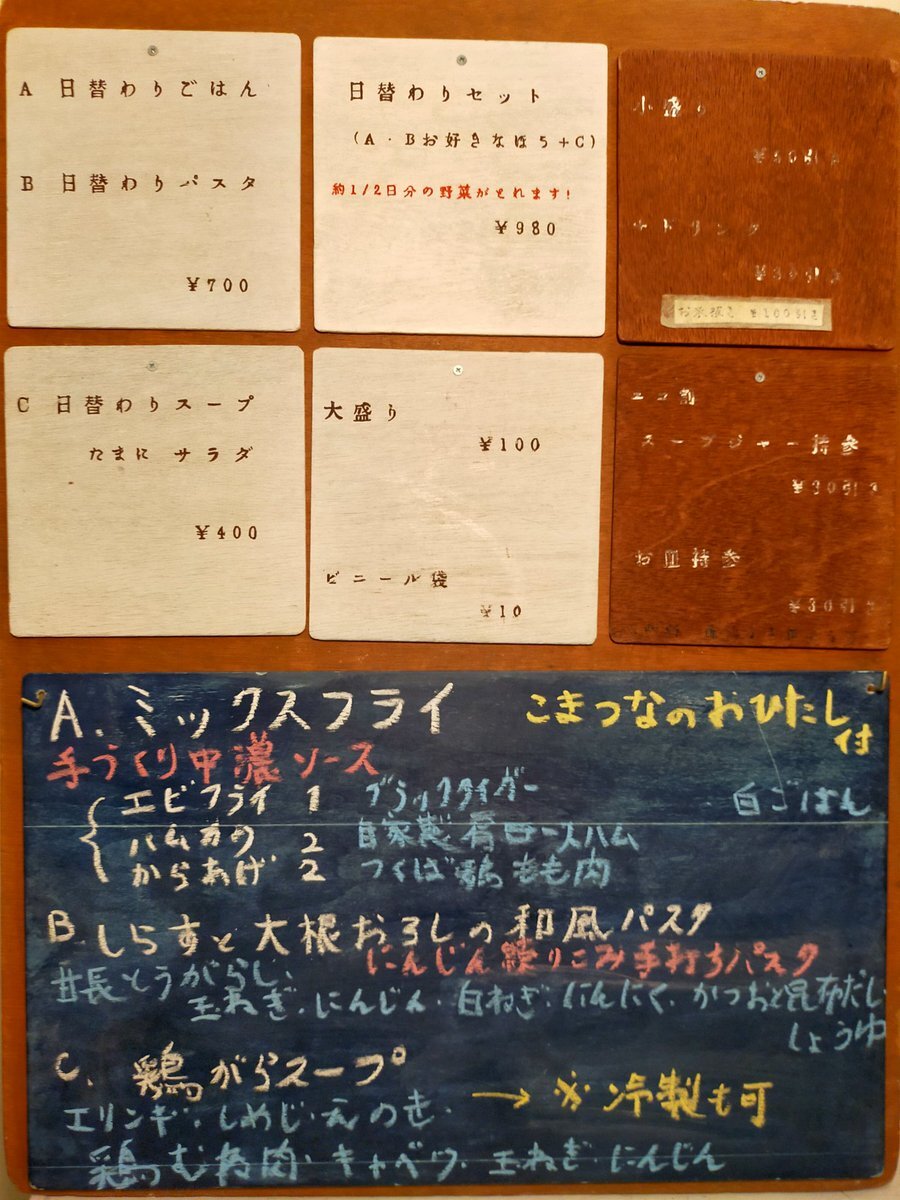 A 日替わりごはん
B 日替わりパスタ
¥700
日替わりセット
(A・Bお好きなほう+C)
約1/2日分の野菜がとれます!
¥980
小盛り
¥50引き
+ドリンク
お茶碗
¥100引き
C 日替わりスープ
たまに サラダ
¥400
大盛り
¥100
ビニール袋
¥10
エコ割
スープジャー持参
¥30引き
お皿持参
¥30引き
A.ミックスフライ
こまつなのおひたし付
手づくり中濃ソース
エビフライ 1 ブラックタイガー
白ごはん
ハムカツ 2 自家製肩ロースハム
からあげ 2 つくば鶏もも肉
B しらすと大根おろしの和風パスタ
にんじん練りこみ手打ちパスタ
甘長とうがらし、
玉ねぎ・にんじん・白ねぎ・にんにく・かつおと昆布だし
しょうゆ
C. 鶏がらスープ
→ ※冷製も可
エリンギ・しめじ・えのき・
鶏むね肉・キャベツ・玉ねぎ・にんじん